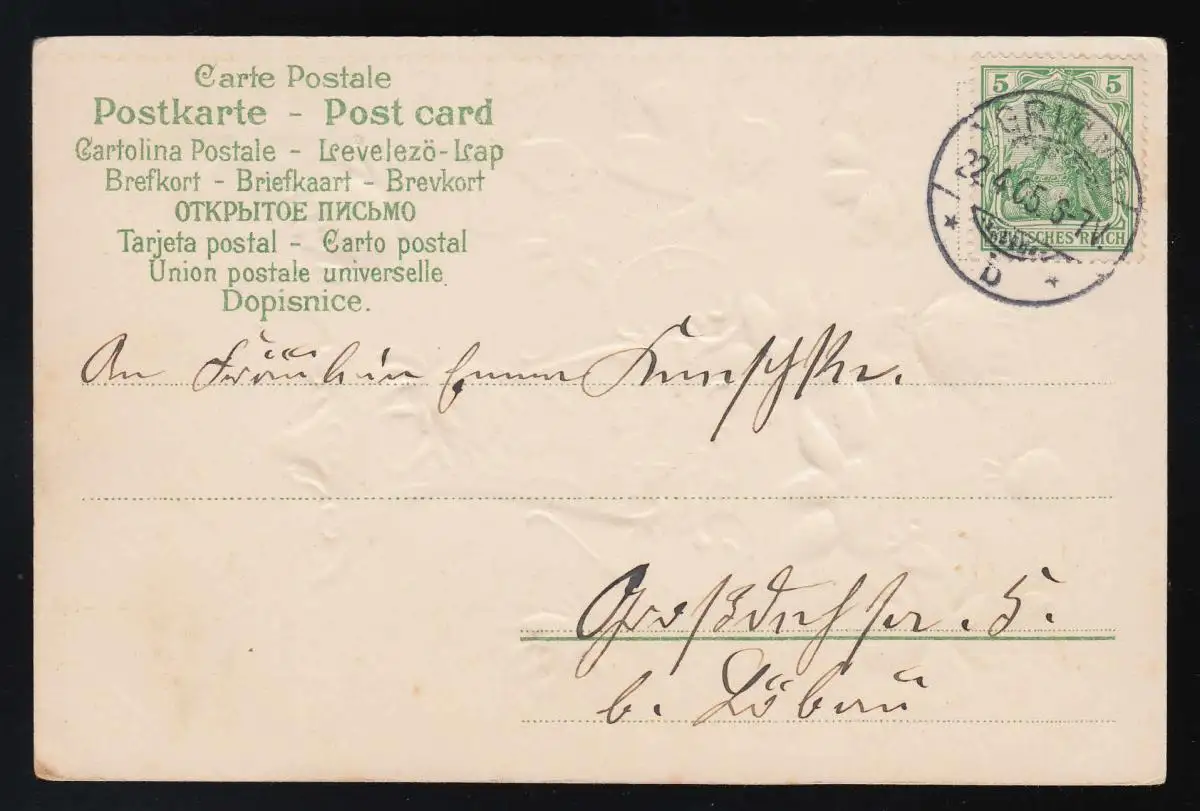 Carte Postale
Postkarte - Post card
Cartolina Postale - Levelezö-Lap
Brefkort - Briefkaart - Brevkort
ОТКРЫТОЕ ПИСЬМО
Tarjeta postal - Carto postal
Union postale universelle.
Dopisnice.
5 5
GRIMMA
22.4.05. 6-7N.
DEUTSCHES REICH
* b *
An Fräulein Emma
b. Löbau